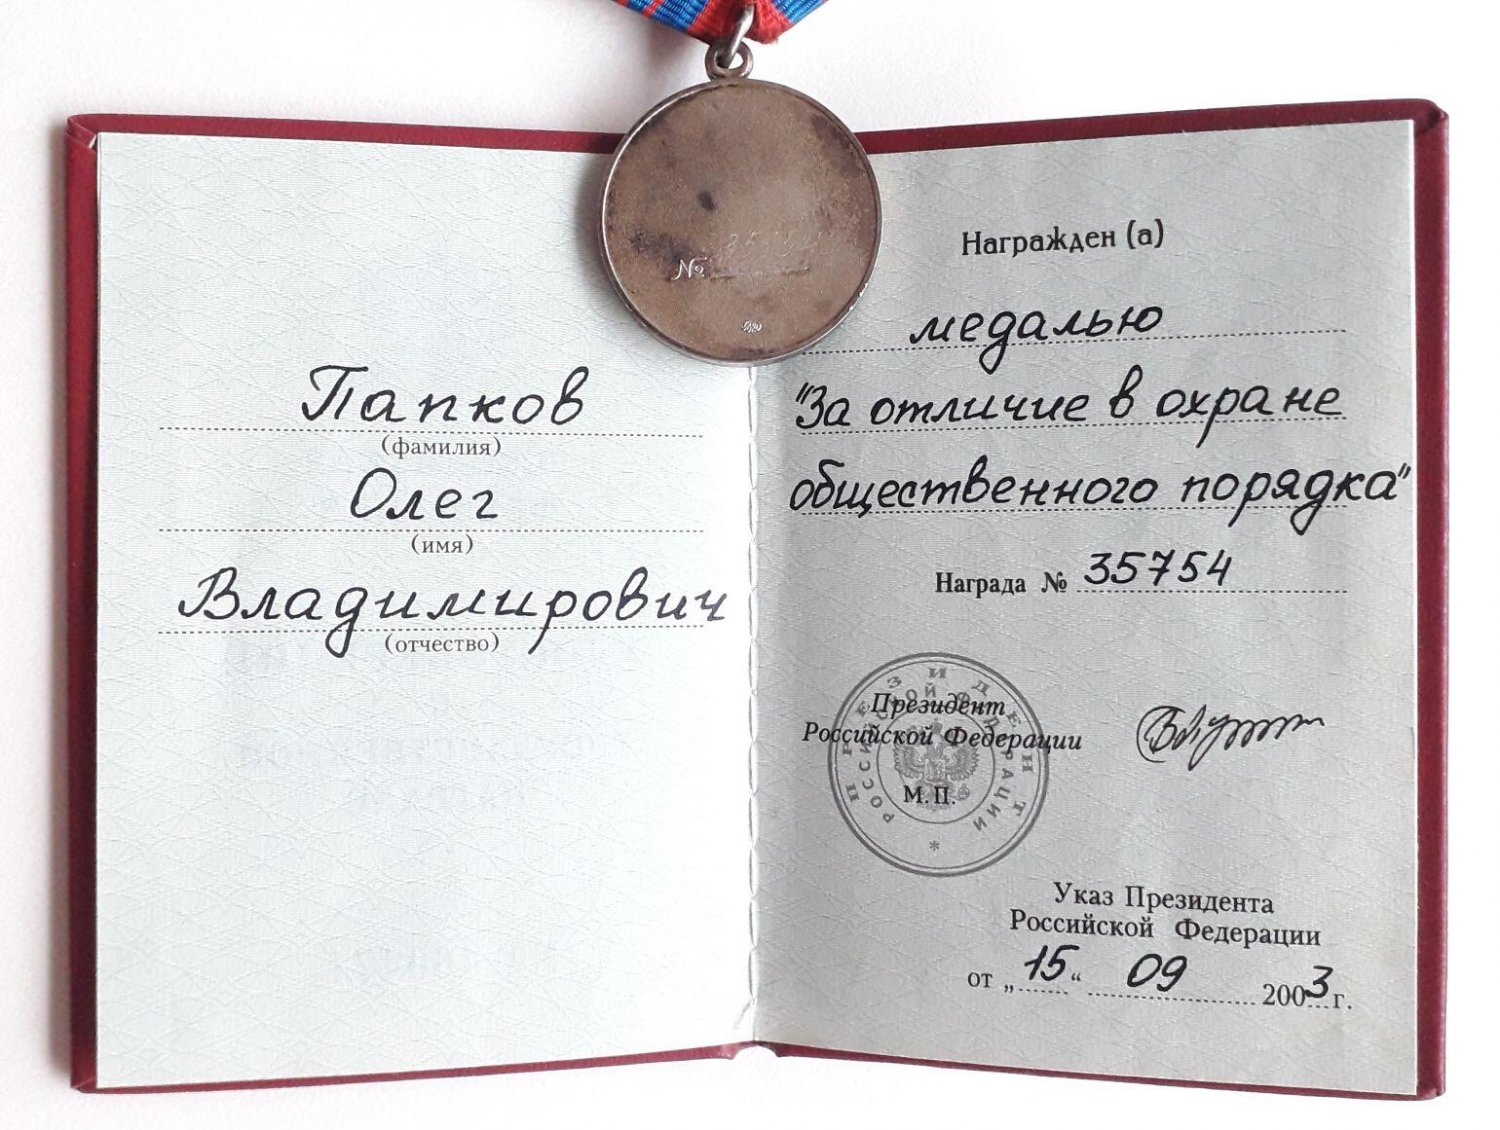 №
Папков
(фамилия)
Олег
(имя)
Владимирович
(отчество)
Награжден (а)
медалью
"За отличие в охране
общественного порядка"
Награда № 35754
ПРЕЗИДЕНТ
РОССИЙСКОЙ ФЕДЕРАЦИИ
*
Президент
Российской Федерации
М. П.
Указ Президента
Российской Федерации
от „15“ 09 2003 г.